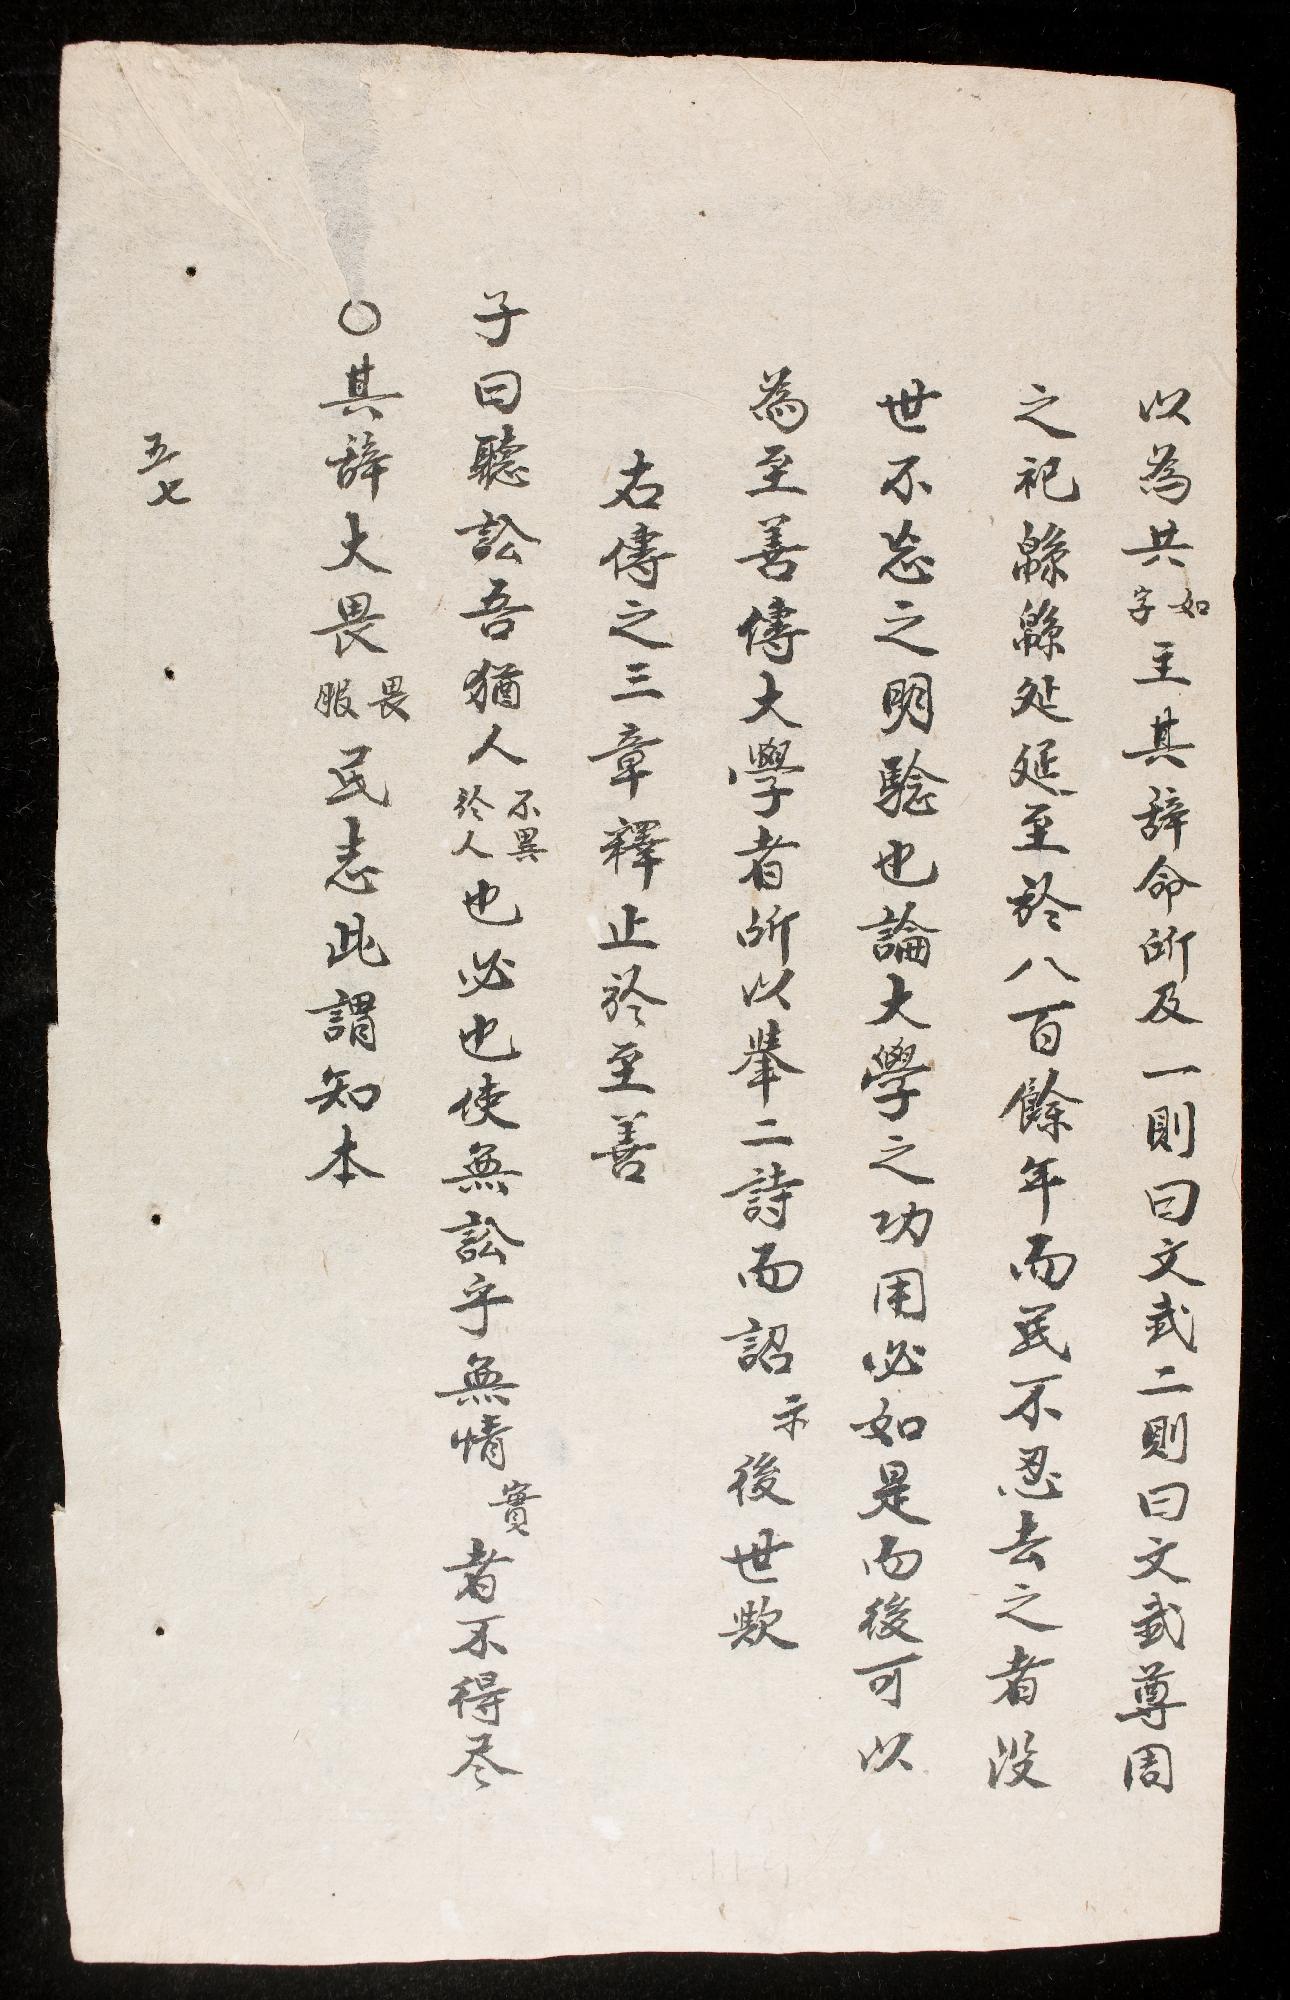 以為共如字主其辞命所及一則曰文武二則曰文武尊周
之祀緜緜延延至於八百餘年而民不忍去之者没
世不忘之明驗也論大學之功用必如是而後可以
為至善傳大學者所以舉二詩而詔示後世歟
右傳之三章釋止於至善
子曰聽訟吾猶人不異於人也必也使無訟乎無情實者不得尽
○其辞大畏畏服民志此謂知本
五七